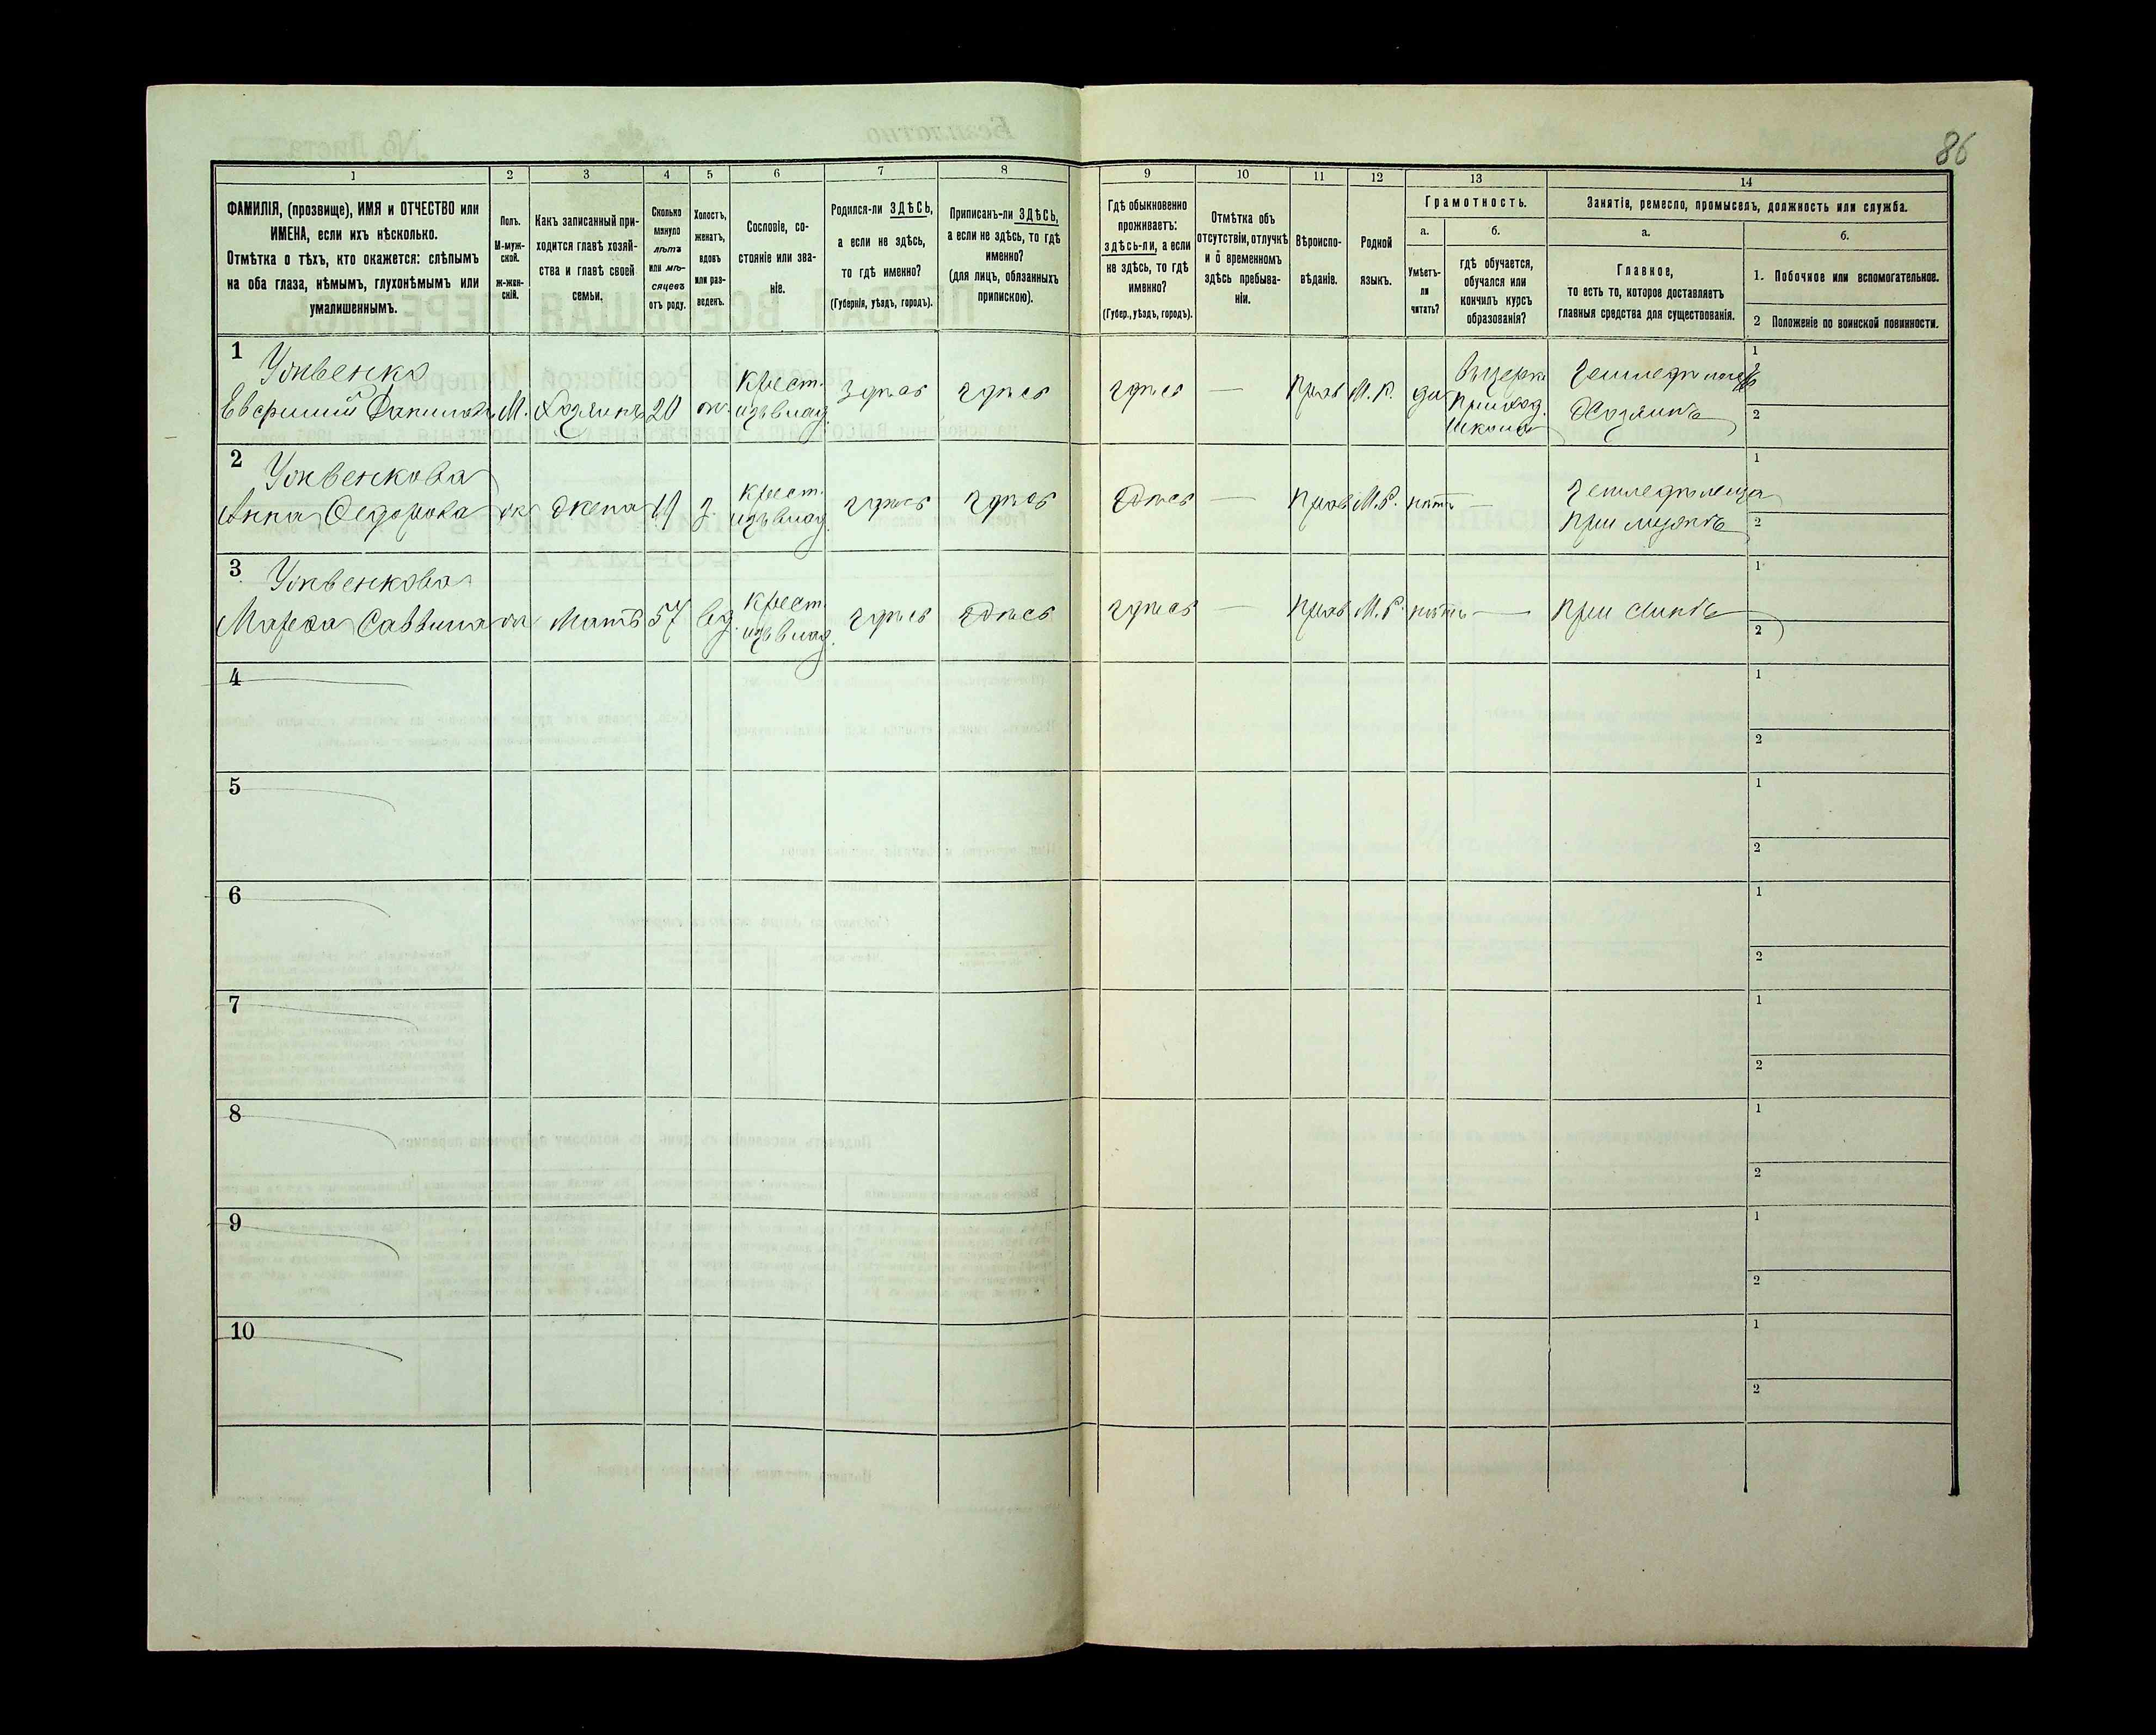 86
1 2 3 4 5 6 7 8 9 10 11 12 13 14
ФАМИЛІЯ, (прозвище), ИМЯ и ОТЧЕСТВО или
ИМЕНА, если ихъ нѣсколько.
Отмѣтка о тѣхъ, кто окажется: слѣпымъ
на оба глаза, нѣмымъ, глухонѣмымъ или
умалишеннымъ.
Полъ.
М-муж-
ской.
ж-жен-
скій.
Какъ записанный при-
ходится главѣ хозяй-
ства и главѣ своей
семьи.
Сколько
минуло
лѣтъ
или мѣ-
сяцевъ
отъ роду.
Холостъ,
женатъ,
вдовъ
или раз-
веденъ.
Сословіе, со-
стояніе или зва-
ніе.
Родился-ли ЗДѢСЬ,
а если не здѣсь,
то гдѣ именно?
(Губернія, уѣздъ, городъ).
Приписанъ-ли ЗДѢСЬ,
а если не здѣсь, то гдѣ
именно?
(для лицъ, обязанныхъ
припискою).
Гдѣ обыкновенно
проживаетъ:
здѣсь-ли, а если
не здѣсь, то гдѣ
именно?
(Губер., уѣздъ, городъ).
Отмѣтка объ
отсутствіи, отлучкѣ
и о временномъ
здѣсь пребыва-
ніи.
Вѣроиспо-
вѣданіе.
Родной
языкъ.
Грамотность.
а.
Умѣетъ-
ли
читать?
б.
гдѣ обучается,
обучался или
кончилъ курсъ
образованія?
Занятіе, ремесло, промыселъ, должность или служба.
а.
Главное,
то есть то, которое доставляетъ
главныя средства для существованія.
б.
1. Побочное или вспомогательное.
2 Положеніе по воинской повинности.
1
Евфимий Данилов М. Хозяинъ 20 ж. Крест. изъ влад. Здѣсь здѣсь здѣсь — Прав М. Р. да
Приход.
Школа
Хозяинъ
1
2
2
Анна Федорова ж жена 19 з. Крест. изъ влад. здѣсь здѣсь здѣсь — Прав М. Р. нѣтъ —
при мужѣ
1
2
3
Марфа Саввина ж мать 57 вд. Крест. изъ влад. здѣсь здѣсь здѣсь — Прав М. Р. нѣтъ — При сынѣ
1
2
4
1
2
5
1
2
6
1
2
7
1
2
8
1
2
9
1
2
10
1
2